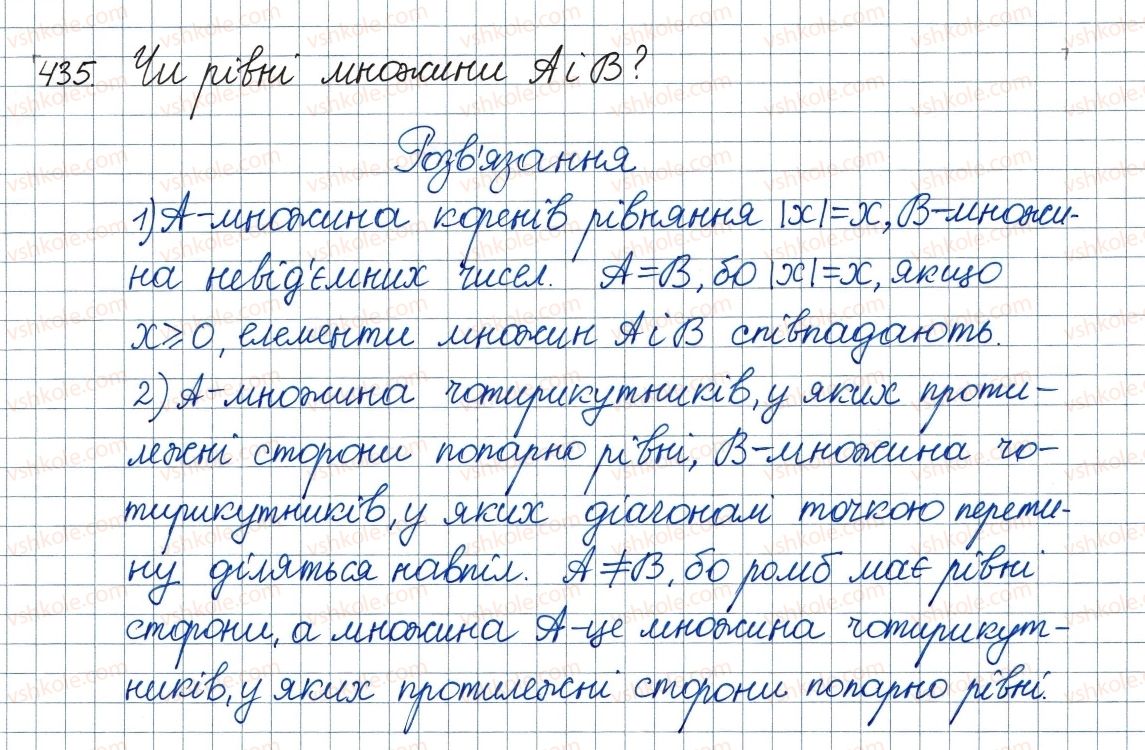 435. Чи рівні множини А і В?
Розв'язання
1) А-множина коренів рівняння |x|=x, В-множи-
на невід'ємних чисел. А=В, бо |x|=x, якщо
x⩾0, елементи множин А і В співпадають.
2) А-множина чотирикутників, у яких проти-
лежні сторони попарно рівні, В-множина чо-
тирикутників, у яких діагоналі точкою перети-
ну діляться навпіл. А≠В, бо ромб має рівні
сторони, а множина А-це множина чотирикут-
ників, у яких протилежні сторони попарно рівні.